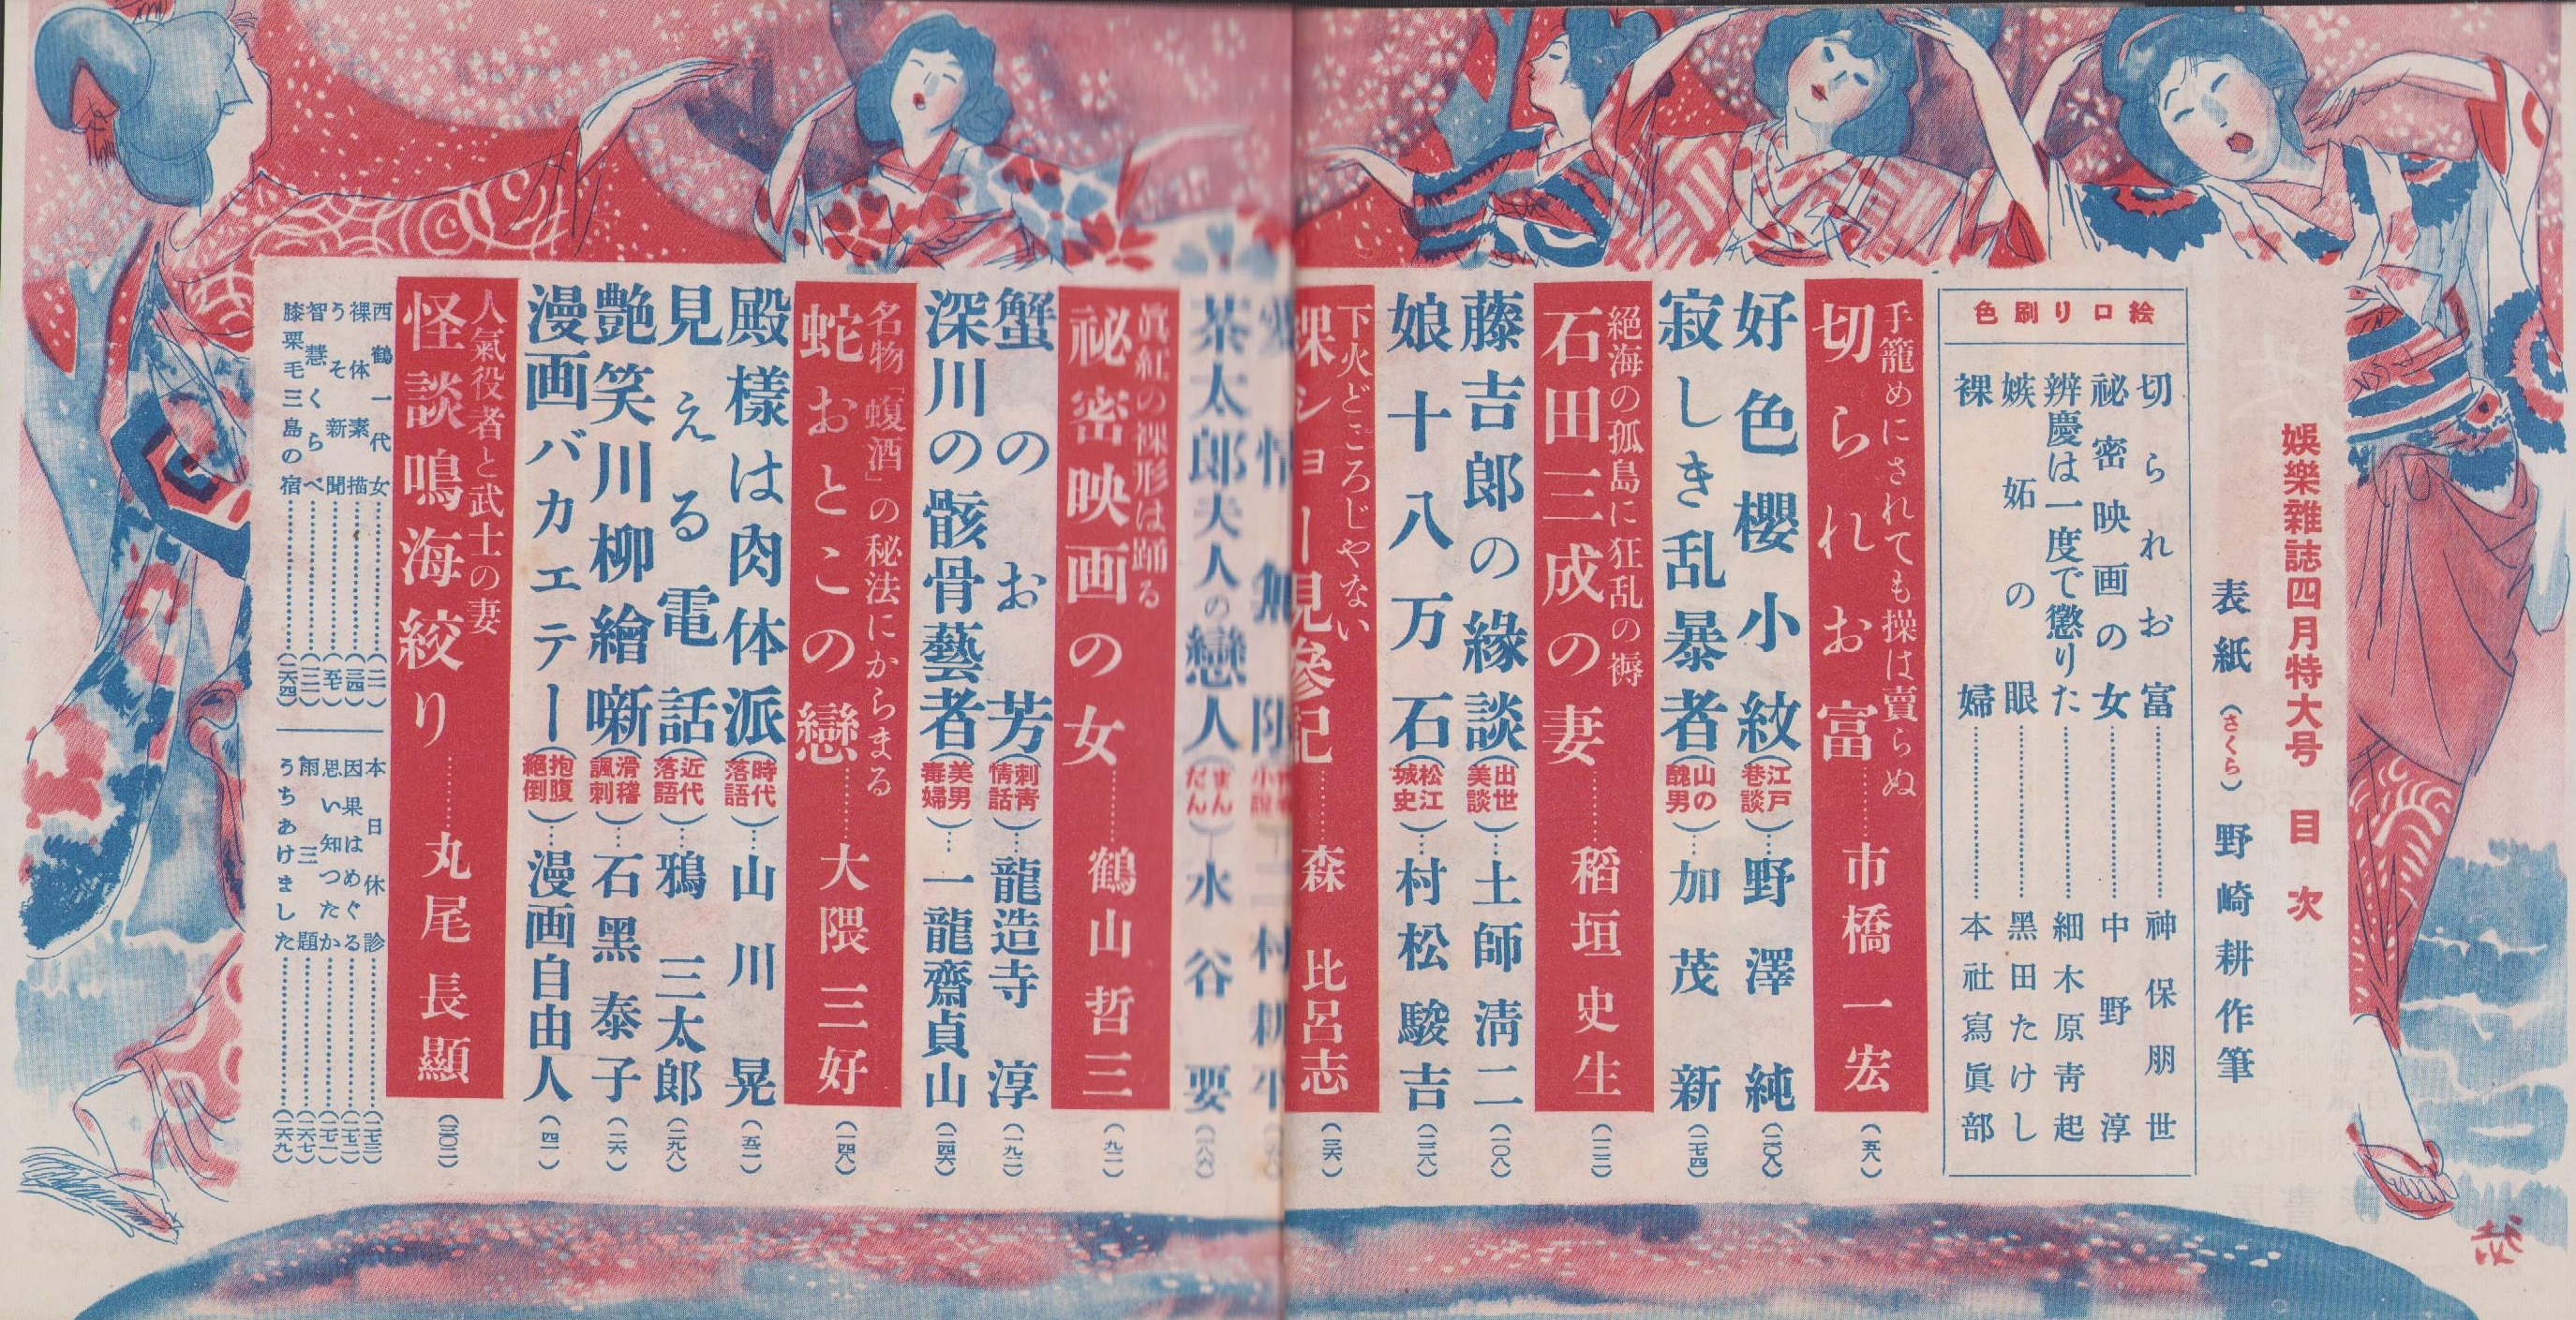 娯樂雜誌四月特大号 目次
表紙(さくら)野崎耕作筆
色刷り口絵
切られお富………神保朋世
祕密映画の女………中野淳
辨慶は一度で懲りた………細木原靑起
嫉妬の眼………黑田たけし
裸婦………本社寫眞部
手籠めにされても操は賣らぬ
切られお富………市橋一宏(五八)
好色櫻小紋(江戸巷談)…野澤純(二〇八)
寂しき乱暴者(山の醜男)…加茂新(二七四)
絕海の孤島に狂乱の褥
石田三成の妻………稻垣史生(一二二)
藤吉郎の緣談(出世美談)…土師淸二(一〇八)
娘十八万石(松江城史)…村松駿吉(二二八)
下火どころじやない
裸ショー見参記………森比呂志(三六)
情無限
茶太郎夫人の戀人(まんだん)…水谷要(一八六)
眞紅の裸形は踊る
祕密映画の女………鶴山哲三(九二)
蟹のお芳(刺靑情話)…龍造寺淳(一九二)
深川の骸骨藝者(美男毒婦)…一龍齋貞山(二四六)
名物「蝮酒」の秘法にからまる
蛇おとこの戀………大隈三好(一四八)
殿樣は肉体派(時代落語)…山川晃(五一)
見える電話(近代落語)…鴉三太郎(二九八)
艶笑川柳繪噺(滑稽諷刺)…石黑泰子(二六)
漫画バカエテー(抱腹絕倒)…漫画自由人(四一)
人氣役者と武士の妻
怪談鳴海絞り………丸尾長顯(三〇二)
西鶴一代女………(二一)
裸体素描………(三四)
うそ新聞………(五七)
智慧くらべ………(一二一)
膝栗毛三島の宿………(二六四)
本日休診………(二七三)
因果はめぐる………(二七二)
思い知つたか………(二七一)
雨三題………(二六七)
うちあけました………(二六九)